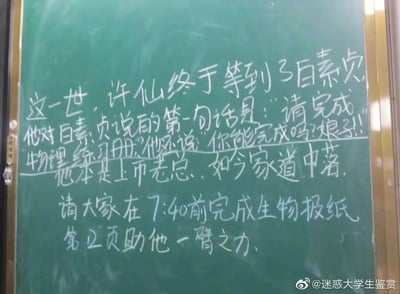 这一世，许仙终于等到了白素贞，
他对白素贞说的第一句话是："请完成
生物理练习册，他不说，你能完成吗？娘子!!
他本是上市老总，如今家道中落，
请大家在7:40前完成生物报纸
第2页助他一臂之力.
@迷惑大学生鉴赏